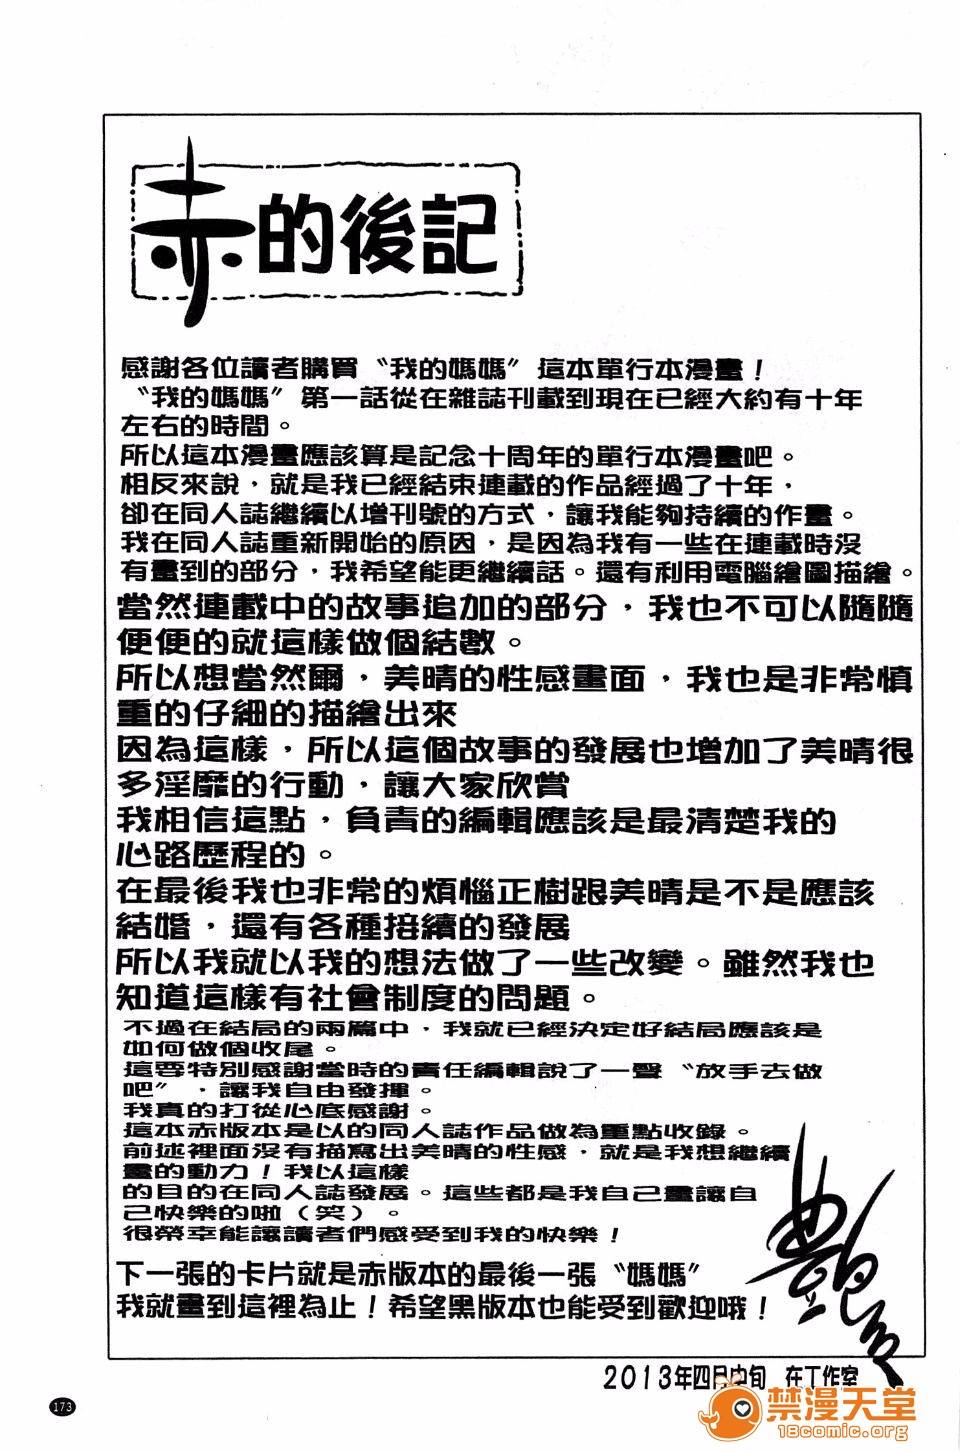 赤的後記
感謝各位讀者購買〝我的媽媽〞這本單行本漫畫！
〝我的媽媽〞第一話從在雜誌刊載到現在已經大約有十年
左右的時間。
所以這本漫畫應該算是記念十周年的單行本漫畫吧。
相反來說，就是我已經結束連載的作品經過了十年，
卻在同人誌繼續以增刊號的方式，讓我能夠持續的作畫。
我在同人誌重新開始的原因，是因為我有一些在連載時沒
有畫到的部分，我希望能更繼續話。還有利用電腦繪圖描繪。
當然連載中的故事追加的部分，我也不可以隨隨
便便的就這樣做個結數。
所以想當然爾，美晴的性感畫面，我也是非常慎
重的仔細的描繪出來
因為這樣，所以這個故事的發展也增加了美晴很
多淫靡的行動，讓大家欣賞
我相信這點，負責的編輯應該是最清楚我的
心路歷程的。
在最後我也非常的煩惱正樹跟美晴是不是應該
結婚，還有各種接續的發展
所以我就以我的想法做了一些改變。雖然我也
知道這樣有社會制度的問題。
不過在結局的兩篇中，我就已經決定好結局應該是
如何做個收尾。
這要特別感謝當時的責任編輯說了一聲〝放手去做
吧〞，讓我自由發揮。
我真的打從心底感謝。
這本赤版本是以的同人誌作品做為重點收錄。
前述裡面沒有描寫出美晴的性感，就是我想繼續
畫的動力！我以這樣
的目的在同人誌發展。這些都是我自己畫讓自
己快樂的啦（笑）。
很榮幸能讓讀者們感受到我的快樂！
下一張的卡片就是赤版本的最後一張〝媽媽〞
我就畫到這裡為止！希望黑版本也能受到歡迎哦！
2013年四月中旬 在工作室
173
禁漫天堂
18comic.org